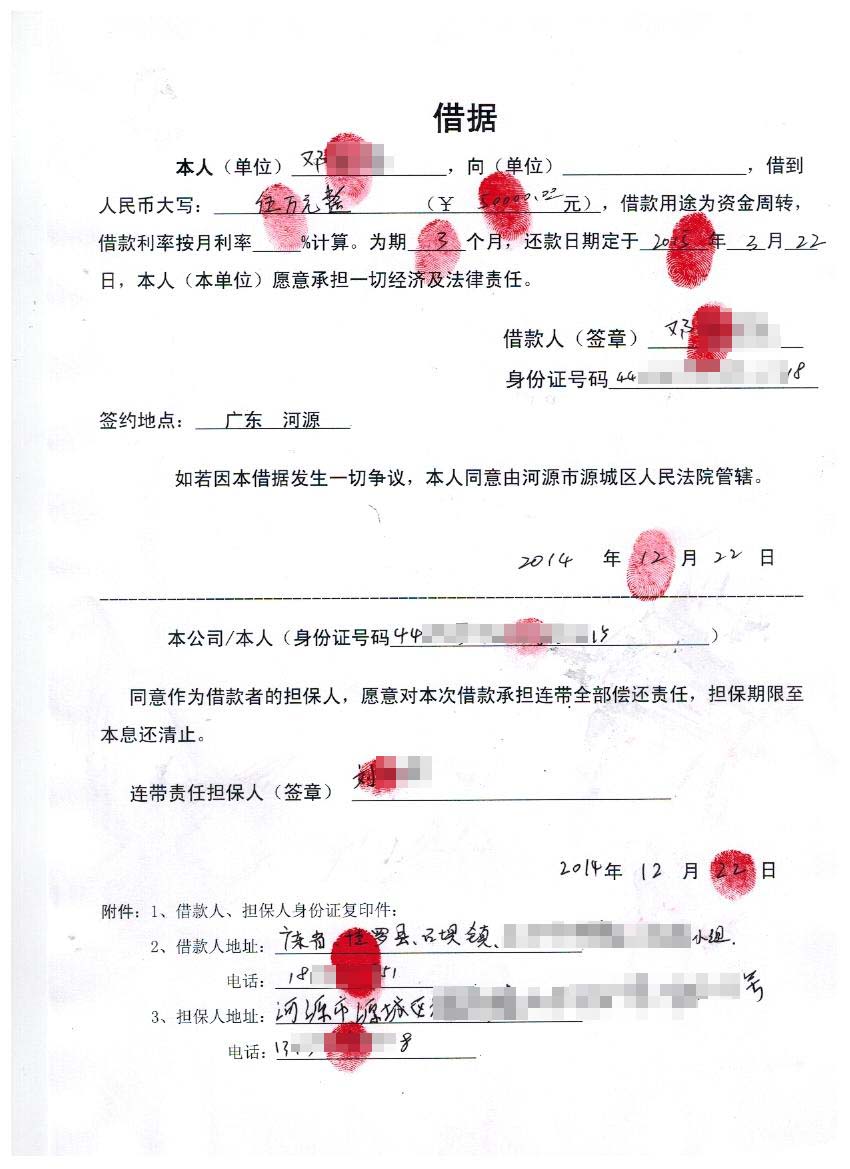 借据
本人（单位）邓，向（单位），借到
人民币大写：伍万元整（￥50000.00元），借款用途为资金周转，
借款利率按月利率 %计算。为期3个月，还款日期定于2015年3月22
日，本人（本单位）愿意承担一切经济及法律责任。
借款人（签章）邓
身份证号码44 18
签约地点：广东 河源
如若因本借据发生一切争议，本人同意由河源市源城区人民法院管辖。
2014 年 12 月 22 日
本公司/本人（身份证号码44 ）
同意作为借款者的担保人，愿意对本次借款承担连带全部偿还责任，担保期限至
本息还清止。
连带责任担保人（签章）刘
2014年 12 月 22 日
附件：1、借款人、担保人身份证复印件：
2、借款人地址：广东省 罗县、石坝镇、 小组.
电话：18 51
3、担保人地址：河源市源城区 号
电话：13 8